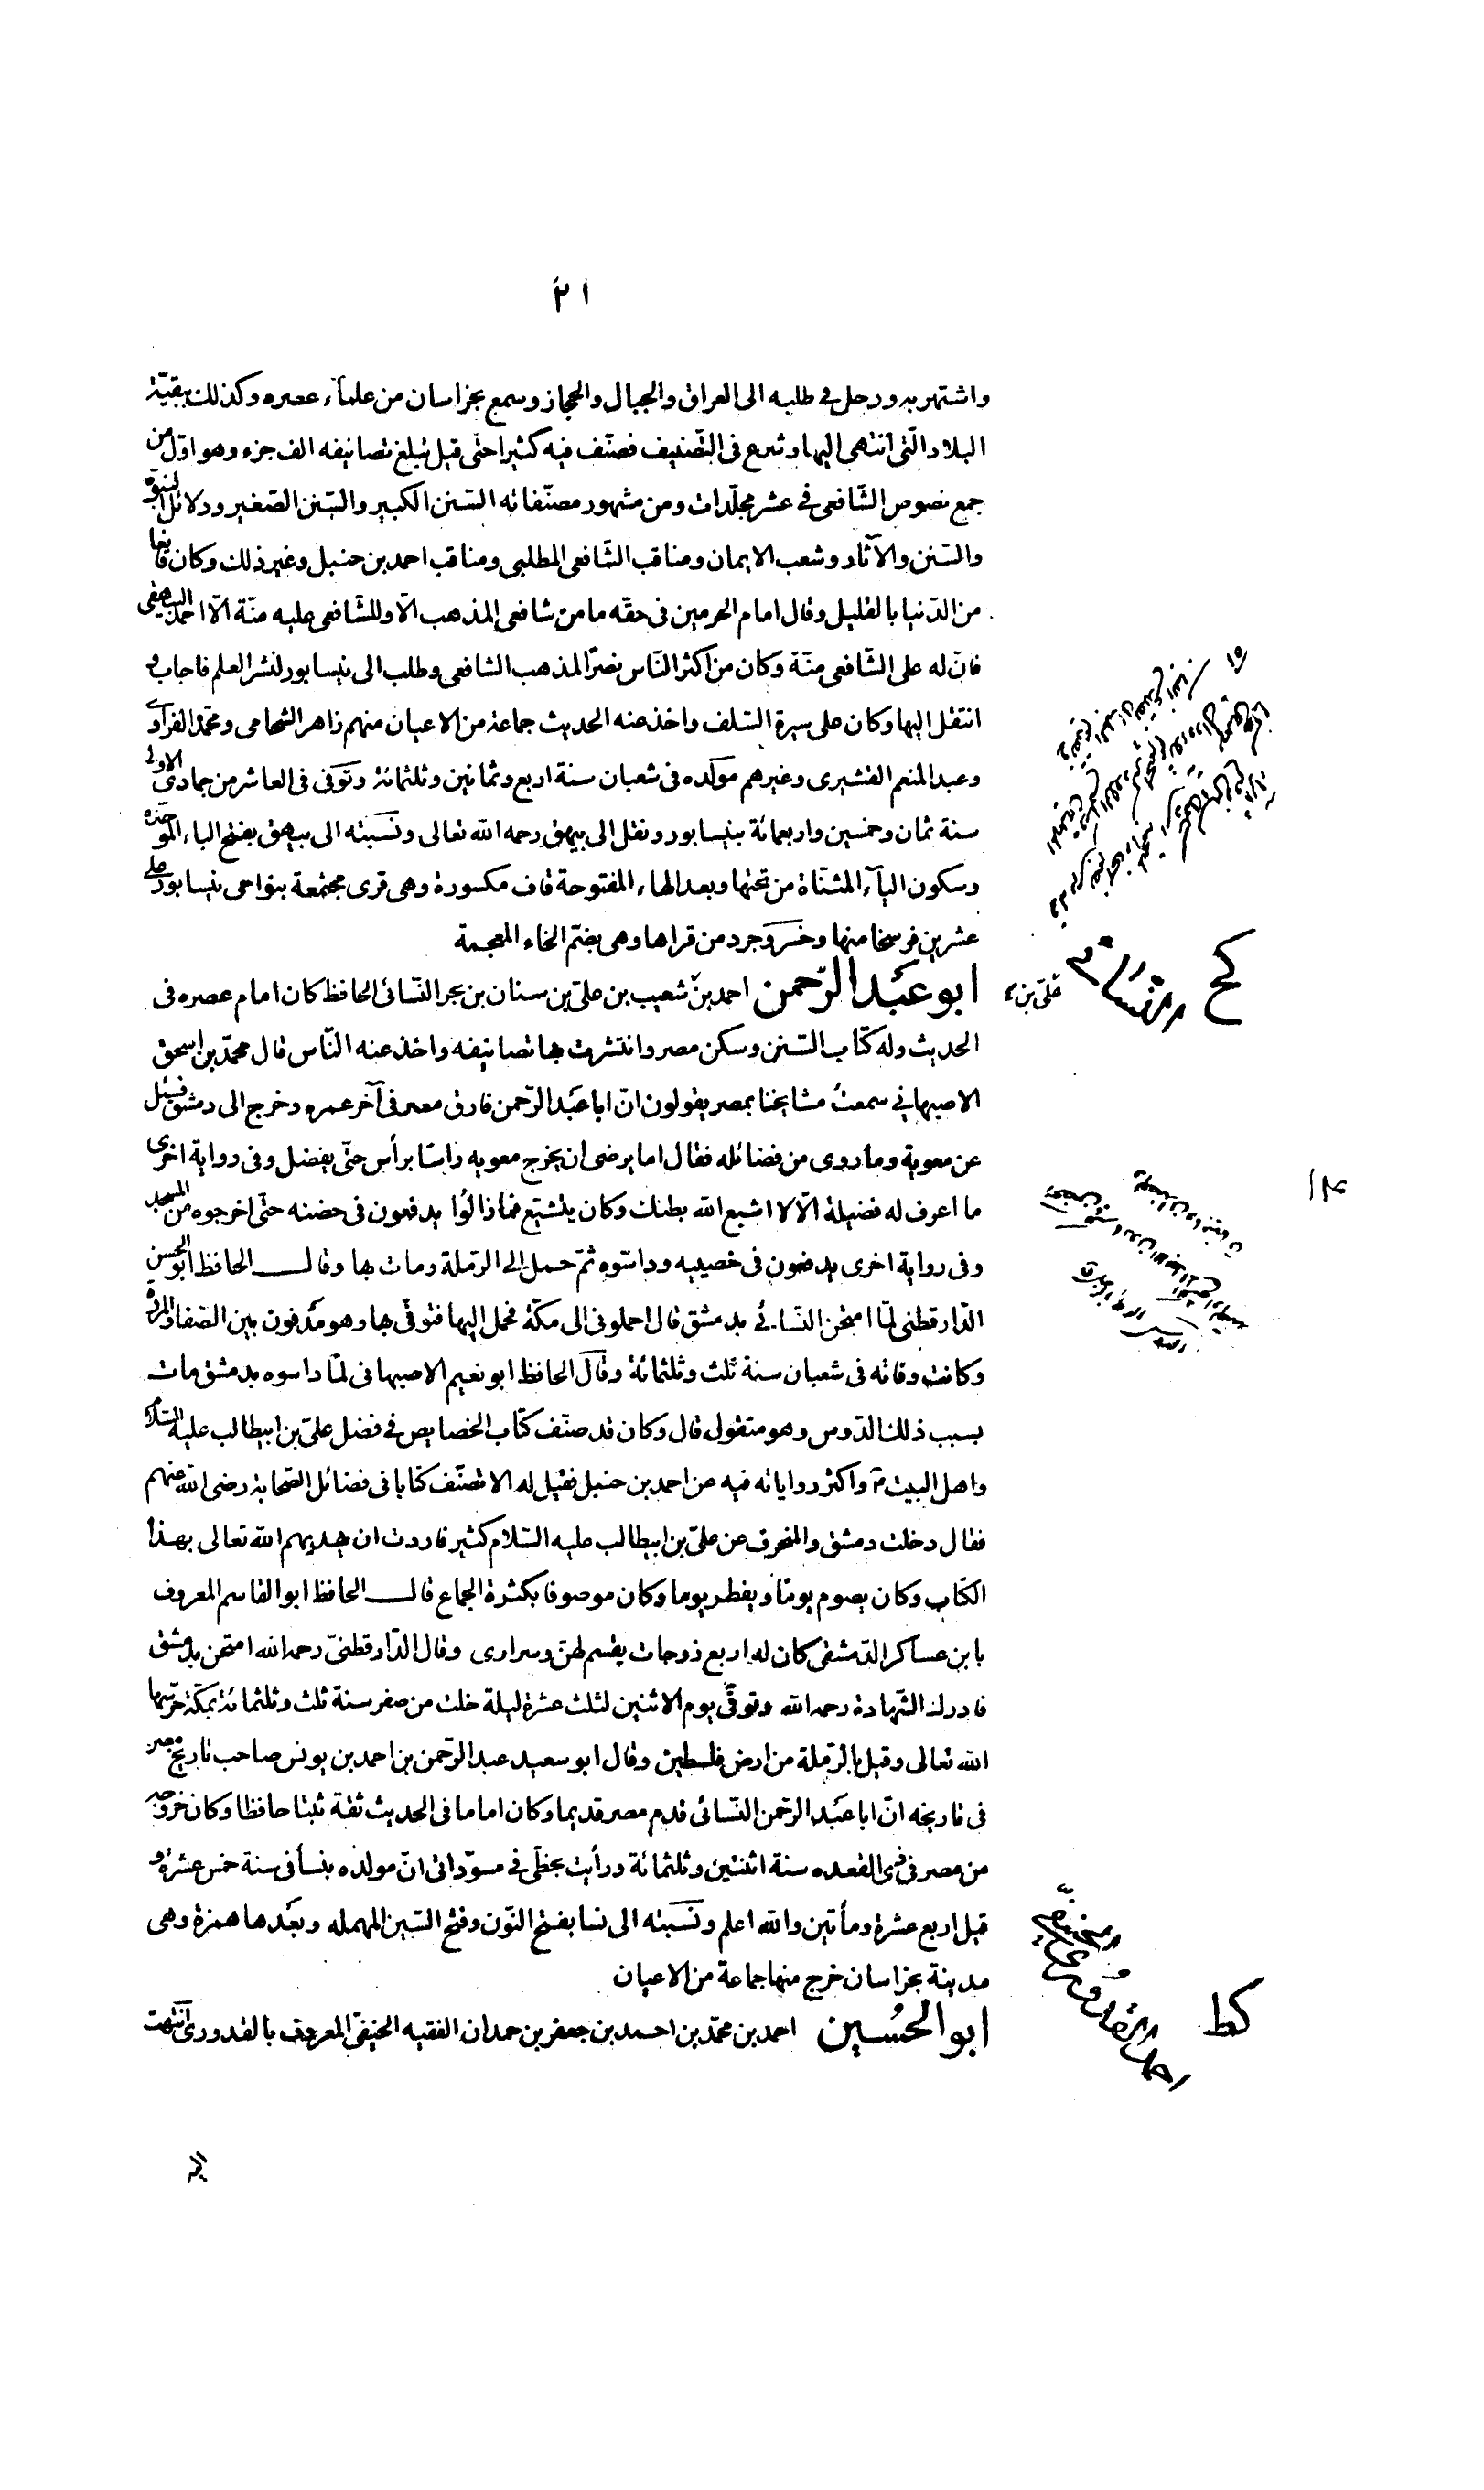 ٢١
واشتهر به ورحل فى طلبه الى العراق والجبال والحجاز وسمع بخراسان من علمآء عصره وكذلك ببقيّة
البلاد الّتى انتهى اليها وشرع فى التّصنيف فصنّف فيه كثيرا حتّى قيل تبلغ تصانيفه الف جزء وهو اوّل من
جمع نصوص الشّافعى فى عشر مجلّدات ومن مشهور مصنّفاته السّنن الكبير والسّنن الصّغير ودلائل النبوّة
والسّنن والآثار وشعب الايمان ومناقب الشّافعى المطلبى ومناقب احمد بن حنبل وغير ذلك وكان قانعا
من الدّنيا بالقليل وقال امام الحرمين فى حقّه ما من شافعى المذهب الّا وللشّافعى عليه منّة الّا احمد البيهقى
فانّ له على الشّافعى منّة وكان من اكثر النّاس نصرًا لمذهب الشافعى وطلب الى نيسابور لنشر العلم فاجاب و
انتقل اليها وكان على سيرة السّلف واخذ عنه الحديث جماعة من الاعيان منهم زاهر الشحامى ومحمّد الفراوى
وعبد المنعم القشيرى وغيرهم مولده فى شعبان سنة اربع وثمانين وثلثمائة وتوفى فى العاشر من جمادى الاولى
سنة ثمان وخمسين واربعمائة بنيسابور ونقل الى بيهق رحمه الله تعالى ونسبته الى بيهق بفتح الباء الموحّدة
وسكون اليآء المثنّاة من تحتها وبعد الهاء المفتوحة قاف مكسورة وهى قرى مجتمعة بنواحى نيسابور على
عشرين فرسخا منها وخسروجرد من قراها وهى بضمّ الخاء المعجمة
كح النّسائى
ابو عبد الرّحمن احمد بن شعيب بن علىّ بن سنان بن بحر النّسائى الحافظ كان امام عصره فى
علىّ بن
الحديث وله كتاب السّنن وسكن مصر وانتشرت بها تصانيفه واخذ عنه النّاس قال محمّد بن اسحق
الاصبهانى سمعتُ مشايخنا بمصر يقولون انّ ابا عبد الرّحمن فارق مصر فى آخر عمره وخرج الى دمشق فسئل
عن معوية وما روى من فضائله فقال اما يرضى ان يخرج معويه راسًا برأس حتّى يفضل وفى رواية اخرى
ما اعرف له فضيلة الّا لا اشبع الله بطنك وكان يتشيّع فما زالُوا يدفعون فى حضنه حتّى اخرجوه من المسجد
وفى رواية اخرى يدفعون فى خصييه وداسّوه ثمّ حمل الى الرّملة ومات بها وقال الحافظ ابو الحسن
الدّارقطنى لمّا امتحن النّسائى بدمشق قال احملونى الى مكّة فحمل اليها فتوفّى بها وهو مدفون بين الصّفا والمروة
وكانت وفاته فى شعبان سنة ثلث وثلثمائة وقال الحافظ ابو نعيم الاصبهانى لمّا داسوه بدمشق مات
بسبب ذلك الدّوس وهو منقول قال وكان قد صنّف كتاب الخصايص فى فضل علىّ بن ابيطالب عليه السّلام
واهل البيت واكثر رواياته فيه عن احمد بن حنبل فقيل له الا تصنّف كتابا فى فضائل الصّحابة رضى الله عنهم
فقال دخلت دمشق والمنحرف عن علىّ بن ابيطالب عليه السّلام كثير فاردت ان يهديهم الله تعالى بهذا
الكتاب وكان يصوم يومًا ويفطر يوما وكان موصوفا بكثرة الجماع قال الحافظ ابو القاسم المعروف
بابن عساكر الدّمشقى كان له اربع زوجات يقسم لهنّ وسرارى وقال الدّارقطنىّ رحمه الله امتحن بدمشق
فادرك الشّهادة رحمه الله وتوفّى يوم الاثنين لثلث عشرة ليلة خلت من صفر سنة ثلث وثلثمائة بمكّة حرّسها
الله تعالى وقيل بالرّملة من ارض فلسطين وقال ابو سعيد عبد الرّحمن بن احمد بن يونس صاحب تاريخ مصر
فى تاريخه انّ ابا عبد الرّحمن النّسائى قدم مصر قديما وكان اماما فى الحديث ثقة ثبتا حافظا وكان خروجه
من مصر فى ذى القعده سنة اثنتين وثلثمائة ورأيت بخطّى فى مسوّداتى انّ مولده بنسأ فى سنة خمس عشرة و
قيل اربع عشرة ومأتين والله اعلم ونسبته الى نسا بفتح النّون وفتح السّين المهمله وبعدها همزة وهى
مدينة بخراسان خرج منها جماعة من الاعيان
كط القدورى الحنفىّ
ابو الحُسين احمد بن محمّد بن احمد بن جعفر بن حمدان الفقيه الحنفىّ المعروف بالقدورى انتهت
اليه